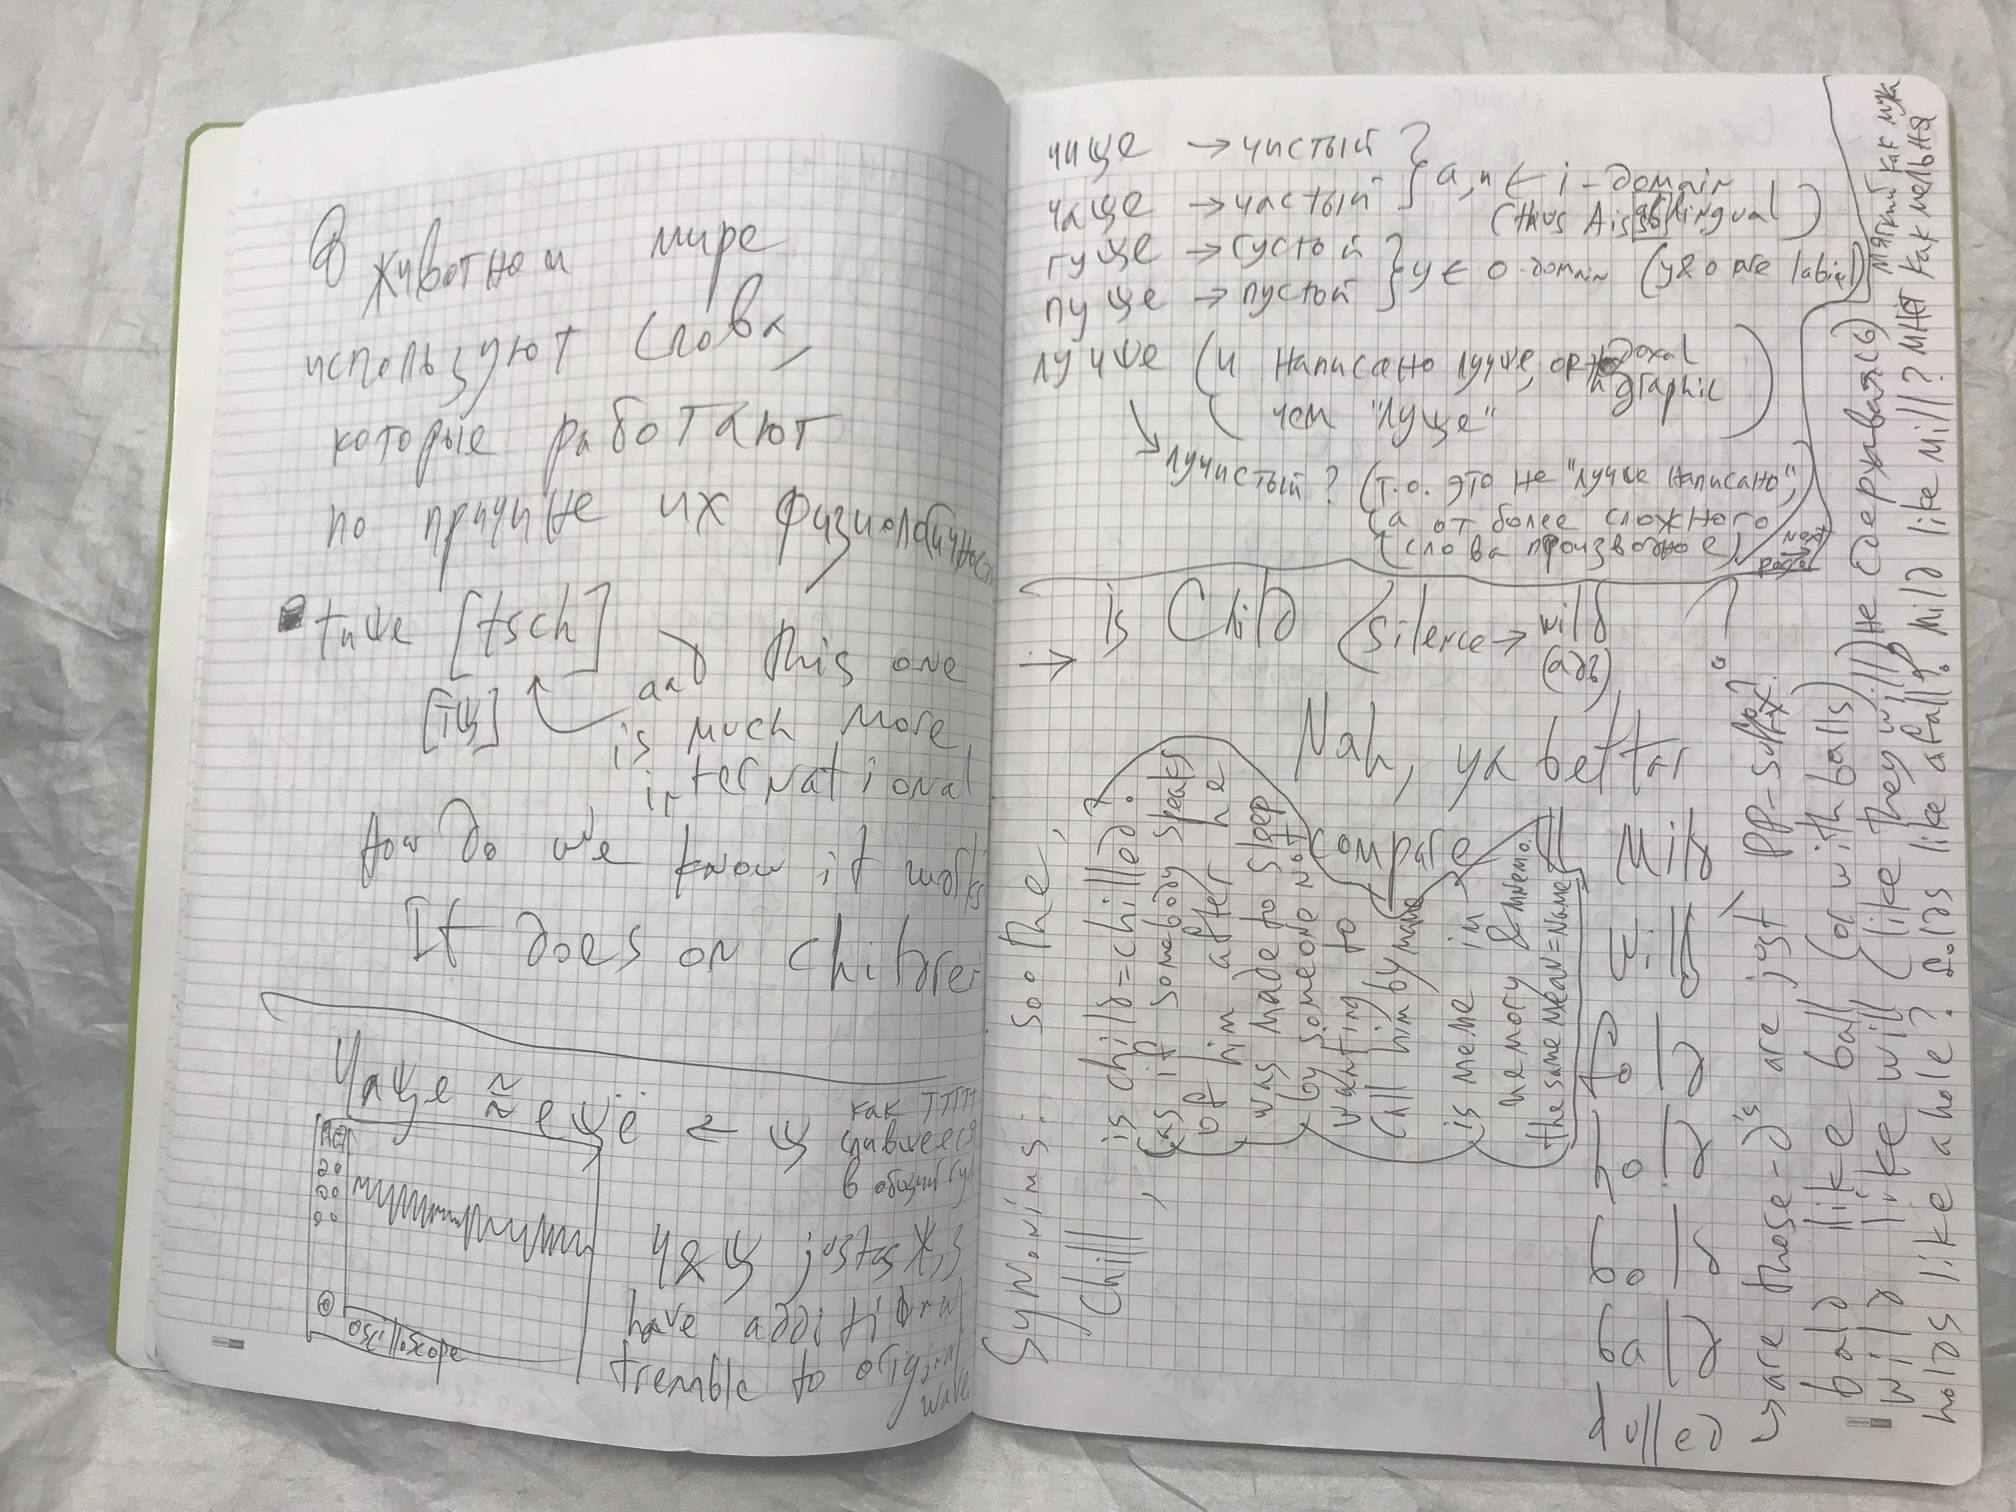 В животном мире
используют слова,
которые работают
по причине их
тише [tsch]
[тщ]
and this one
is much more
international
How do we know it works
It does on children
Чаще ≈ ещё ← щ
как тпт
в общий гул
osilloscope
ч & щ just as ж, з
have additional
tremble to original
wave
чище → чистый
чаще → частый } а, и ∈ i-domain
(thus A is sublingual)
гуще → густой
пуще → пустой } у ∈ о-domain (у & о are labial)
лучше (и написано лучше, orthodoxal
n graphic
чем "луще"
лучистый? (т.о. это не "лучше написано",
а от более сложного
слова производное)
next page
→ is Child (silence → wild ?
(adb)
Nah, ya better
compare
Mild
Wild
fold
hold
bold
bald
dulled
Synonims: soothe,
Chill,
is child = chilled?
(as if somebody speaks
of him after he
was made to sleep
by someone not
wanting to
call him by name
is meme in
memory & mnemo.
the same mean = name
are those -d's are just PP-suffix?
bald like ball (or with balls)
wild like will (like they will) (не сдерживаясь)
holds like a hole? folds like a fall? mild like mill? мня как мельня
мягкий как мука